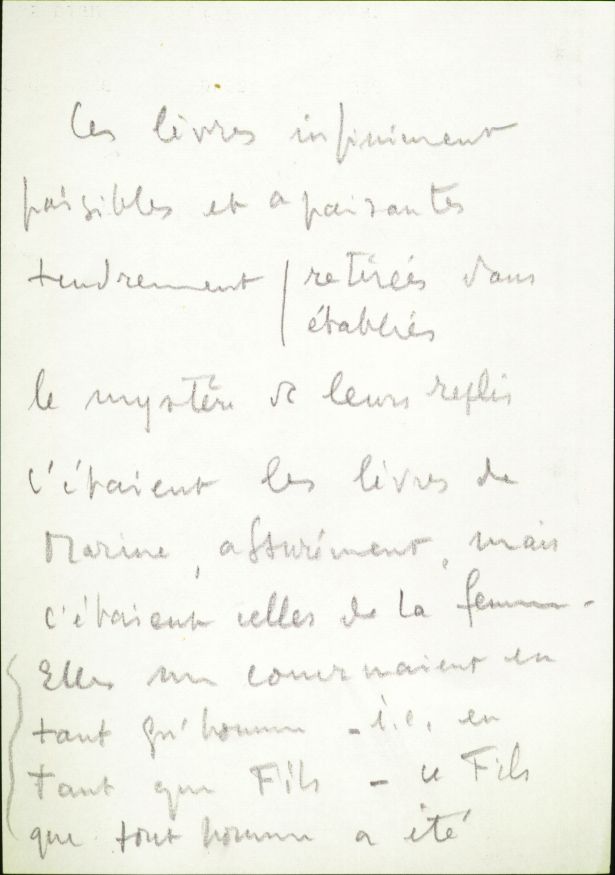 Ces lèvres infiniment
paisibles et apaisantes
tendrement | retirées dans
établies
le mystère de leurs replis
c'étaient les lèvres de
Marine, assurément, mais
c'étaient celles de la femme -
Elles me concernaient en
tant qu'homme - i.e. en
tant que Fils - ce Fils
que tout homme a été